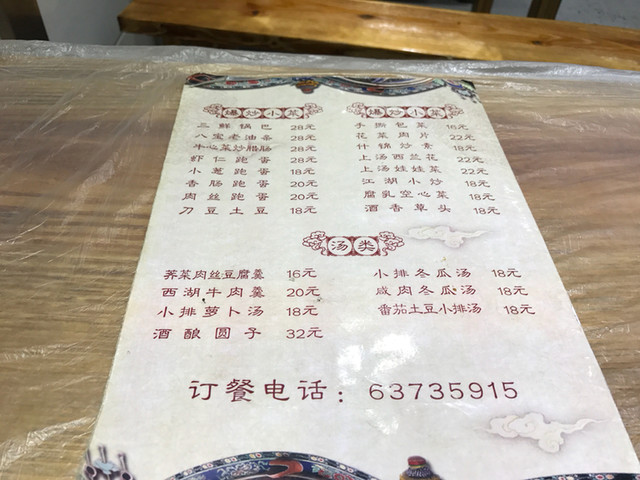 爆炒小菜
三鲜锅巴 28元
八宝老油条 28元
牛心菜炒腊肠 28元
虾仁跑蛋 28元
小葱跑蛋 18元
香肠跑蛋 20元
肉丝跑蛋 20元
刀豆土豆 18元
爆炒小菜
手撕包菜 16元
花菜肉片 22元
什锦炒素 18元
上汤西兰花 22元
上汤娃娃菜 22元
江湖小炒 18元
腐乳空心菜 18元
酒香草头 18元
汤类
荠菜肉丝豆腐羹 16元
西湖牛肉羹 20元
小排萝卜汤 18元
酒酿圆子 32元
小排冬瓜汤 18元
咸肉冬瓜汤 18元
番茄土豆小排汤 18元
订餐电话：63735915